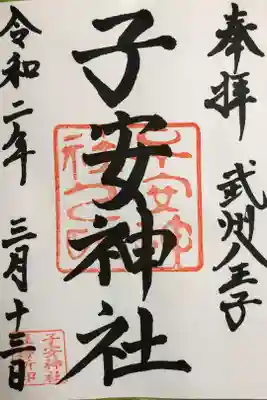 奉拝
武州八王子
子安神社
令和二年 三月十三日